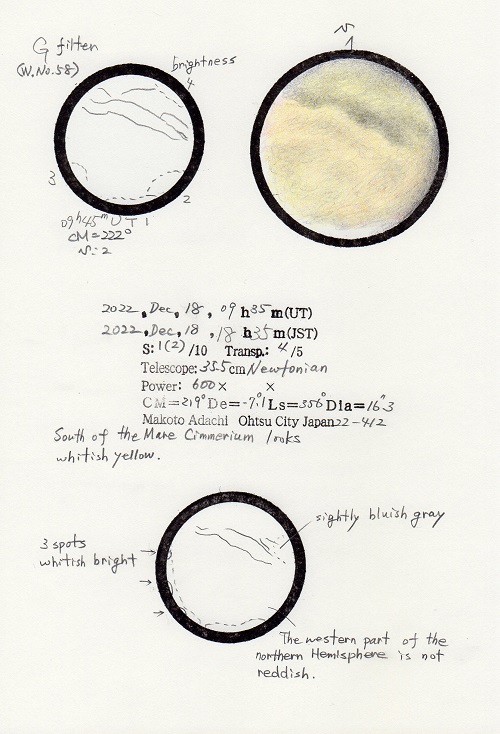 G filter
(W.No.58)
brightness
4
3
2
09h45m UT
CM=222°
2022, Dec, 18, 09h35m(UT)
2022, Dec, 18, 18h35m(JST)
S: 1(2)/10 Transp.: 4/5
Telescope: 35.5cm Newtonian
Power: 600× ×
CM=219° De=-7.°1 Ls=356° Dia=16."3
Makoto Adachi Ohtsu City Japan 22-412
South of the Mare Cimmerium looks
whitish yellow.
sightly bluish gray
3 spots
whitish bright
The western part of the
northern Hemisphere is not
reddish.